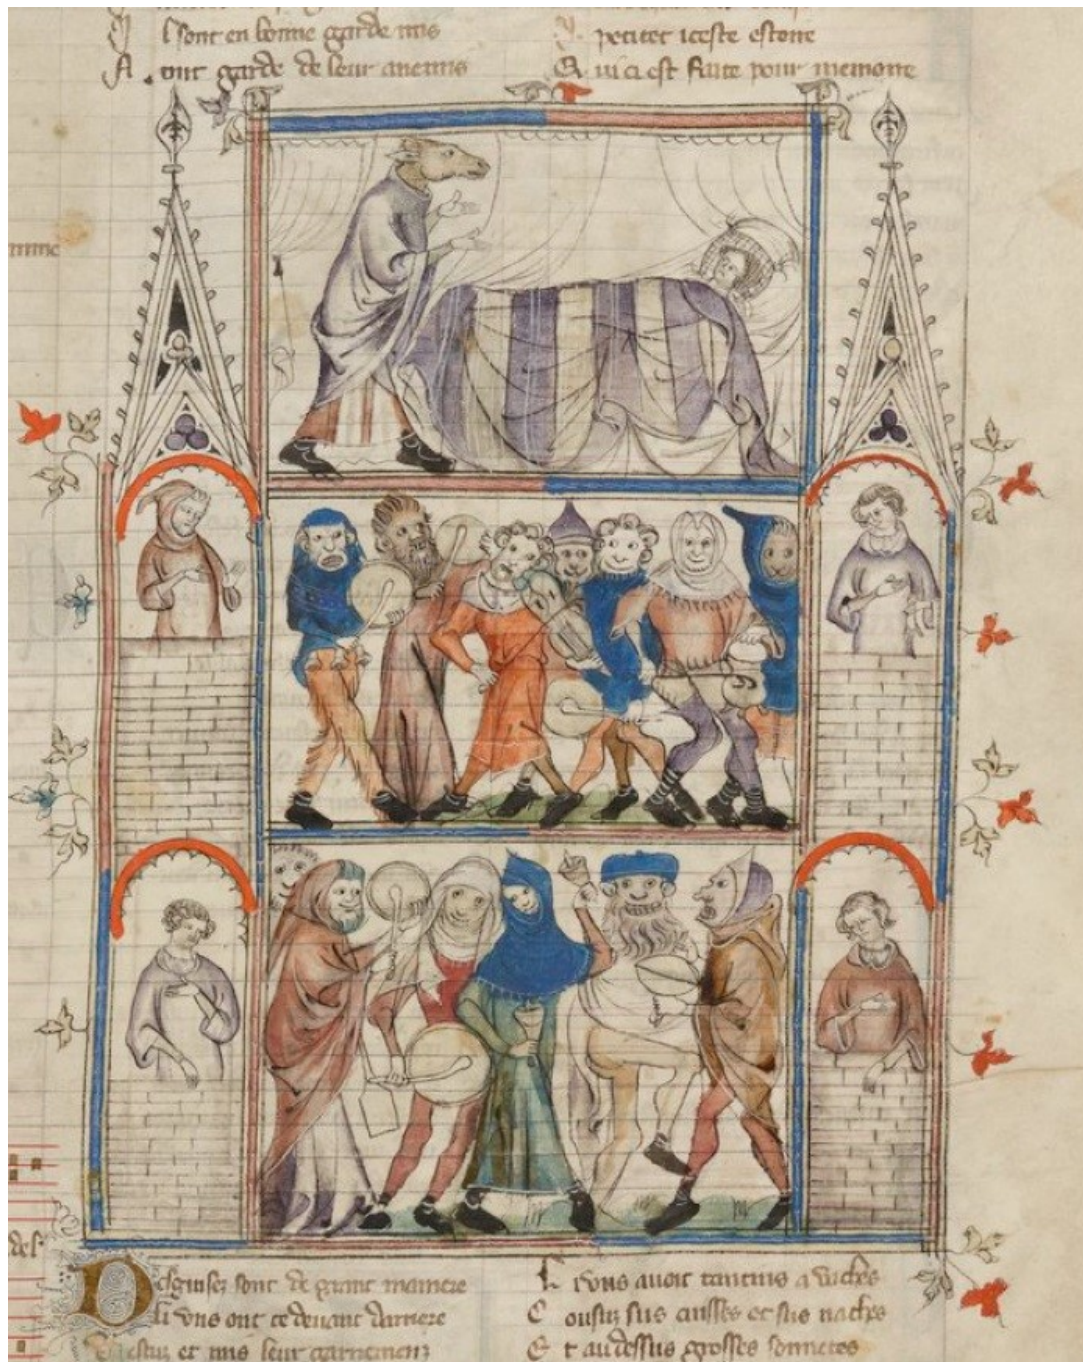 l sont en bonne garde mis
N ont garde de leur anemis
petitet iceste estoire
Q ui ci est faite pour memoire
D esguisez sont de grant maniere
Li uns ont ce devant darriere
uestuz et mis leur garnemenz
L i uns auoit tantins a uaches
C ousuz sus cuisses et sus naches
E t au dessus grosses sonnetes